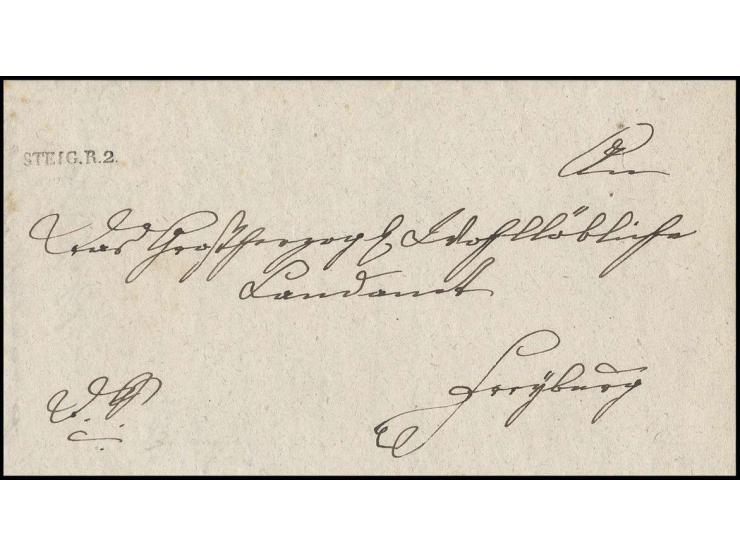 STEIG.R.2.
An
Das Großherzogl. Wohllöbliche
Landamt
Freyburg